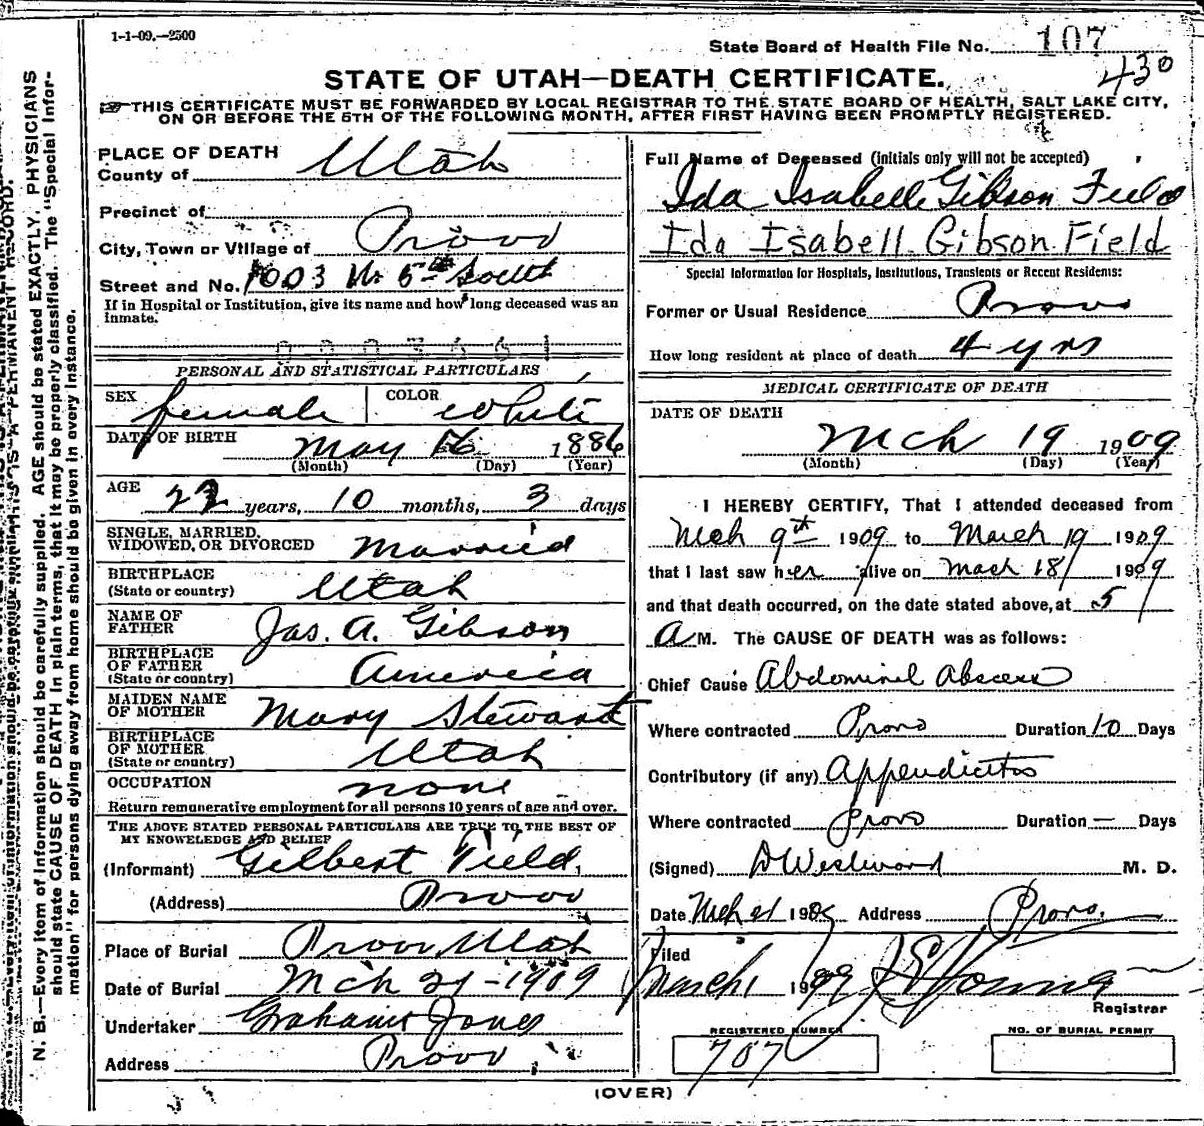 1-1-09.—2500
State Board of Health File No. 107
430
STATE OF UTAH—DEATH CERTIFICATE.
THIS CERTIFICATE MUST BE FORWARDED BY LOCAL REGISTRAR TO THE STATE BOARD OF HEALTH, SALT LAKE CITY,
ON OR BEFORE THE 5TH OF THE FOLLOWING MONTH, AFTER FIRST HAVING BEEN PROMPTLY REGISTERED.
N. B.—Every item of information should be carefully supplied. AGE should be stated EXACTLY. PHYSICIANS
should state CAUSE OF DEATH in plain terms, that it may be properly classified. The "Special Infor-
mation" for persons dying away from home should be given in every instance.
PLACE OF DEATH
County of Utah
Precinct of
City, Town or Village of Provo
Street and No. 1003 W. 5th South
If in Hospital or Institution, give its name and how long deceased was an
inmate.
PERSONAL AND STATISTICAL PARTICULARS
SEX female COLOR White
DATE OF BIRTH May 16 1886
(Month) (Day) (Year)
AGE 22 years, 10 months, 3 days
SINGLE, MARRIED,
WIDOWED, OR DIVORCED Married
BIRTHPLACE
(State or country) Utah
NAME OF
FATHER Jas. A. Gibson
BIRTHPLACE
OF FATHER
(State or country) America
MAIDEN NAME
OF MOTHER Mary Stewart
BIRTHPLACE
OF MOTHER
(State or country) Utah
OCCUPATION none
Return remunerative employment for all persons 10 years of age and over.
THE ABOVE STATED PERSONAL PARTICULARS ARE TRUE TO THE BEST OF
MY KNOWELEDGE AND BELIEF
(Informant) Gilbert Field,
(Address) Provo
Place of Burial Provo Utah
Date of Burial Mch 21-1909
Undertaker Grahame Jones
Address Provo
Full Name of Deceased (initials only will not be accepted)
Ida Isabelle Gibson Field
Ida Isabell Gibson Field
Special Information for Hospitals, Institutions, Transients or Recent Residents:
Former or Usual Residence Provo
How long resident at place of death 4 yrs
MEDICAL CERTIFICATE OF DEATH
DATE OF DEATH
Mch 19 1909
(Month) (Day) (Year)
I HEREBY CERTIFY, That I attended deceased from
Mch 9th 1909 to March 19 1909
that I last saw her alive on Mach 18 1909
and that death occurred, on the date stated above, at 5
A M. The CAUSE OF DEATH was as follows:
Chief Cause Abdominal Abscess
Where contracted Provo Duration 10 Days
Contributory (if any) Appendicitis
Where contracted Provo Duration — Days
(Signed) D Westwood M. D.
Date Mch 21 1909 Address Provo.
Filed
March 1909 Young
Registrar
REGISTERED NUMBER
707
NO. OF BURIAL PERMIT
(OVER)